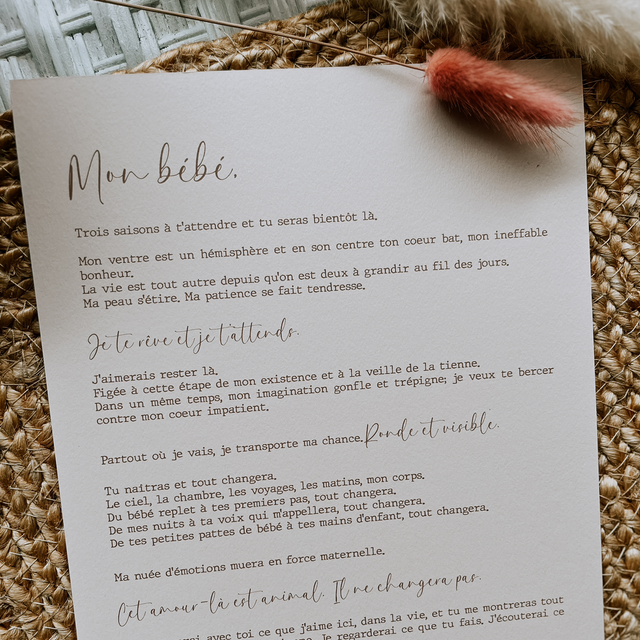 Mon bébé,
Trois saisons à t'attendre et tu seras bientôt là.
Mon ventre est un hémisphère et en son centre ton coeur bat, mon ineffable
bonheur.
La vie est tout autre depuis qu'on est deux à grandir au fil des jours.
Ma peau s'étire. Ma patience se fait tendresse.
Je te rêve et je t'attends.
J'aimerais rester là.
Figée à cette étape de mon existence et à la veille de la tienne.
Dans un même temps, mon imagination gonfle et trépigne; je veux te bercer
contre mon coeur impatient.
Partout où je vais, je transporte ma chance. Ronde et visible.
Tu naîtras et tout changera.
Le ciel, la chambre, les voyages, les matins, mon corps.
Du bébé replet à tes premiers pas, tout changera.
De mes nuits à ta voix qui m'appellera, tout changera.
De tes petites pattes de bébé à tes mains d'enfant, tout changera.
Ma nuée d'émotions muera en force maternelle.
Cet amour-là est animal. Il ne changera pas.
avec toi ce que j'aime ici, dans la vie, et tu me montreras tout
Je regarderai ce que tu fais. J'écouterai ce